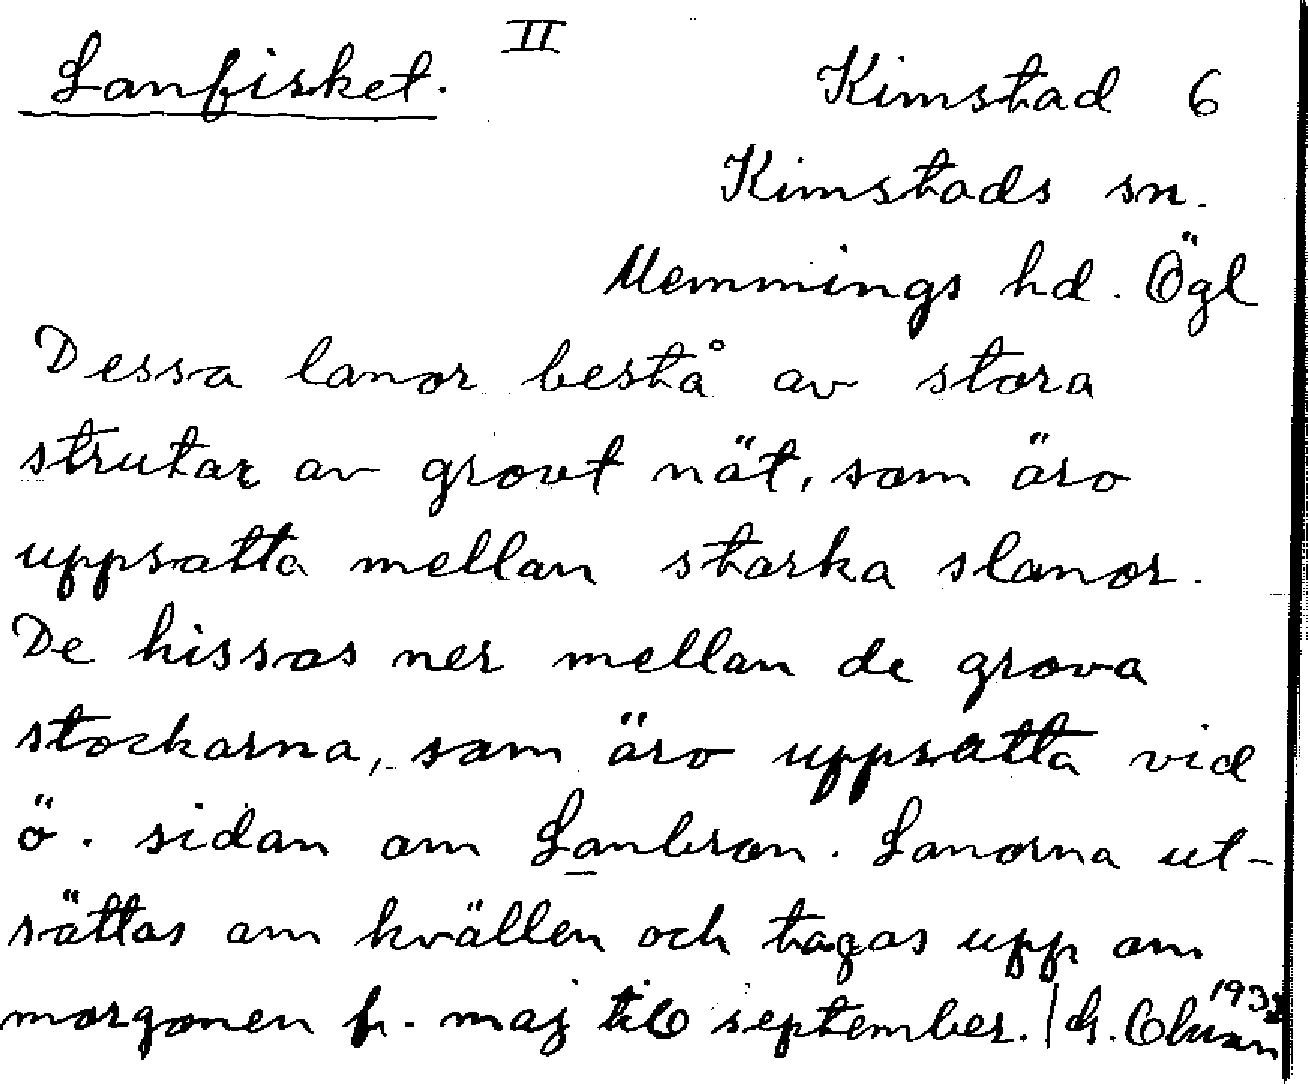 II
Lanfisket.
Kimstad 6
Kimstads sn.
Memmings hd. Ögl
Dessa lanor bestå av stora
strutar av grovt nät, som äro
uppsatta mellan starka slanor.
De hissas ner mellan de grova
stockarna, som äro uppsatta vid
ö. sidan om Lanbron. Lanorna ut-
sättas om kvällen och tagas upp om
morgonen fr. maj till september. |